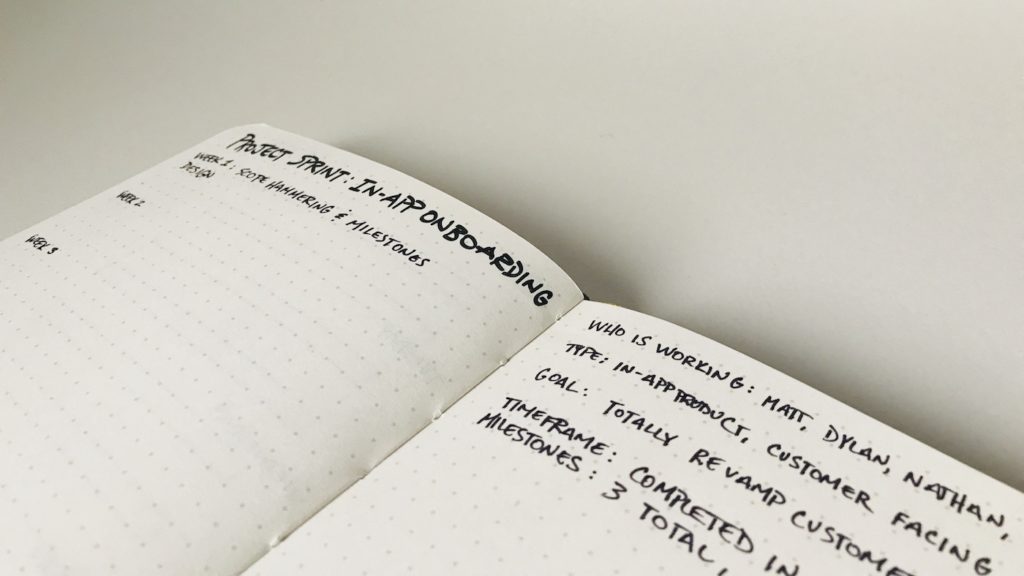 PROJECT SPRINT: IN-APP ONBOARDING
WEEK 1: SCOPE HAMMERING & MILESTONES
DESIGN
WEEK 2
WEEK 3
WHO IS WORKING: MATT, DYLAN, NATHAN,
TYPE: IN-APP PRODUCT, CUSTOMER FACING
GOAL: TOTALLY REVAMP CUSTOME
TIMEFRAME: COMPLETED IN
MILESTONES: 3 TOTAL,